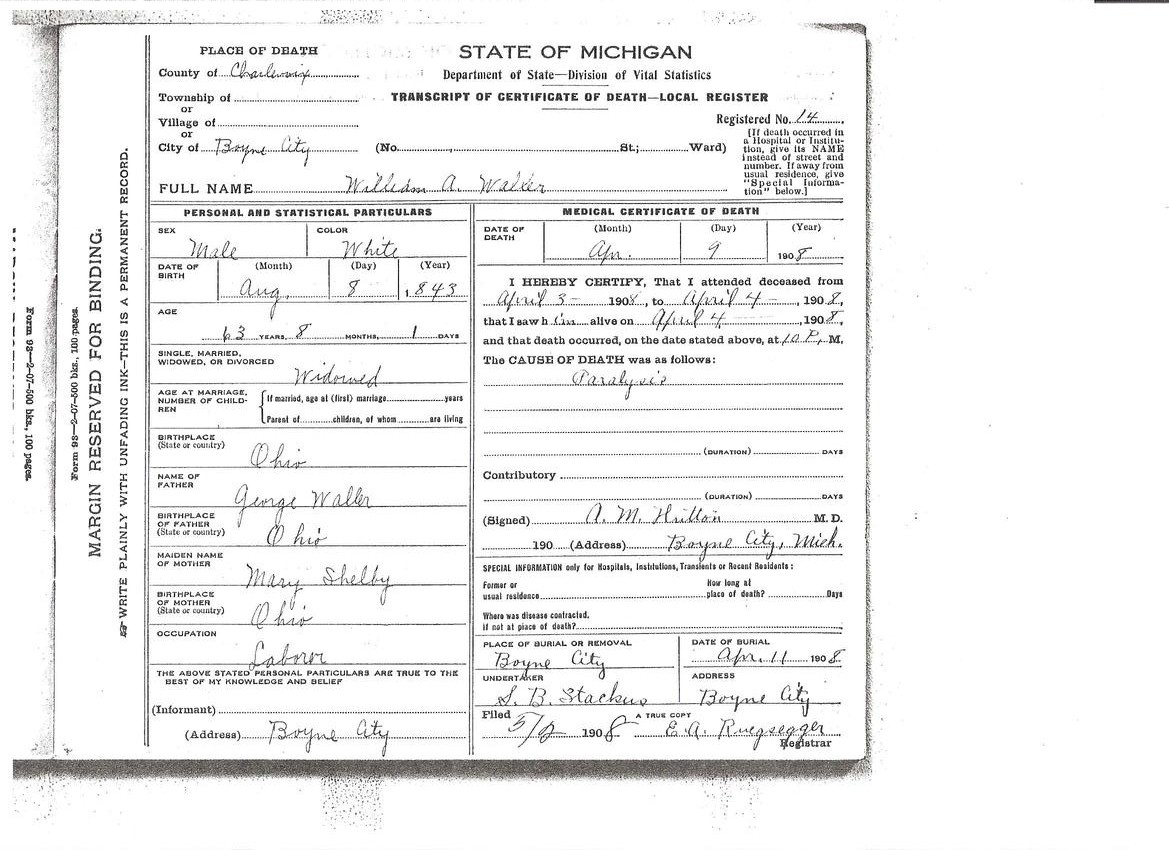 PLACE OF DEATH
County of Charlevoix
Township of
or
Village of
or
City of Boyne City
STATE OF MICHIGAN
Department of State—Division of Vital Statistics
TRANSCRIPT OF CERTIFICATE OF DEATH—LOCAL REGISTER
Registered No. 14
(No. , St.; Ward)
[If death occurred in
a Hospital or Institu-
tion, give its NAME
instead of street and
number. If away from
usual residence, give
"Special Informa-
tion" below.]
FULL NAME William A. Waller
PERSONAL AND STATISTICAL PARTICULARS
SEX COLOR
Male White
DATE OF BIRTH (Month) (Day) (Year)
Aug. 8 1843
AGE
63 YEARS, 8 MONTHS, 1 DAYS
SINGLE, MARRIED,
WIDOWED, OR DIVORCED
Widowed
AGE AT MARRIAGE,
NUMBER OF CHILD-
REN
If married, age at (first) marriage years
Parent of children, of whom are living
BIRTHPLACE
(State or country)
Ohio
NAME OF
FATHER
George Waller
BIRTHPLACE
OF FATHER
(State or country)
Ohio
MAIDEN NAME
OF MOTHER
Mary Shelby
BIRTHPLACE
OF MOTHER
(State or country)
Ohio
OCCUPATION
Laboror
THE ABOVE STATED PERSONAL PARTICULARS ARE TRUE TO THE
BEST OF MY KNOWLEDGE AND BELIEF
(Informant)
(Address) Boyne City
MEDICAL CERTIFICATE OF DEATH
DATE OF
DEATH
(Month) (Day) (Year)
Apr. 9 1908
I HEREBY CERTIFY, That I attended deceased from
April 3 - 1908, to April 4 -, 1908,
that I saw h im alive on April 4 , 1908,
and that death occurred, on the date stated above, at 10 P. M.
The CAUSE OF DEATH was as follows:
Paralysis
(DURATION) DAYS
Contributory
(DURATION) DAYS
(Signed) A. M. M. D.
190 (Address) Boyne City, Mich.
SPECIAL INFORMATION only for Hospitals, Institutions, Transients or Recent Residents:
Former or
usual residence
How long at
place of death? Days
Where was disease contracted,
if not at place of death?
PLACE OF BURIAL OR REMOVAL DATE OF BURIAL
Boyne City Apr. 11 1908
UNDERTAKER ADDRESS
S. B. Stackus Boyne City
Filed 5/2 1908 A TRUE COPY E. A. Ruegsegger
Registrar
MARGIN RESERVED FOR BINDING.
WRITE PLAINLY WITH UNFADING INK—THIS IS A PERMANENT RECORD.
Form 93—2-07-500 bks., 100 pages.
Form 93—2-07-500 bks., 100 pages.